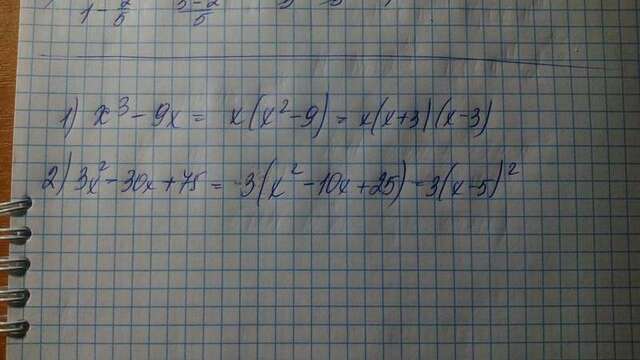 1 - 2/5 3-2/5
1) x³ - 9x = x(x² - 9) = x(x+3)(x-3)
2) 3x² - 30x + 75 = 3(x² - 10x + 25) = 3(x-5)²